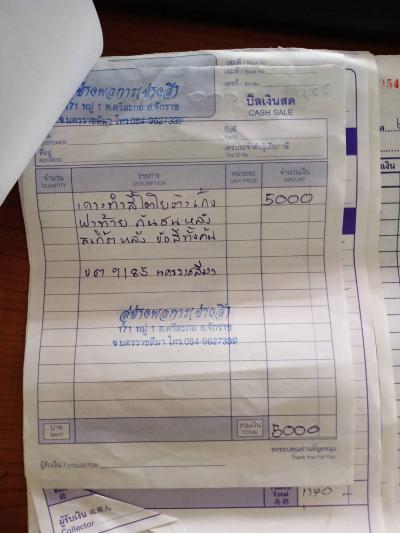 เล่มที่ / Book No
เลขที่ / Bill No
บิลเงินสด
CASH SALE
อู่ช่างพลการ(ช่างสี)
171 หมู่ 1 ต.ศรีละกอ อ.จักราช
จ.นครราชสีมา โทร.084-9627339
CUSTOMER
วันที่
DATE
ที่อยู่
ADDRESS
เลขประจำตัวผู้เสียภาษี
Tax ID No.
จำนวน
QUANTITY
รายการ
DESCRIPTION
หน่วยละ
UNIT PRICE
จำนวนเงิน
AMOUNT
5000
ฝาท้าย กันชนหลัง
บต 9185 นครราชสีมา
อู่ช่างพลการ(ช่างสี)
171 หมู่ 1 ต.ศรีละกอ อ.จักราช
จ.นครราชสีมา โทร.084-9627339
บาท
BAHT
รวมเงิน
TOTAL
5000
ขอขอบคุณท่านที่อุดหนุน
Thank You For You
ผู้รับเงิน / COLLECTOR
Total
1340 -
ผู้รับเงิน
Collector